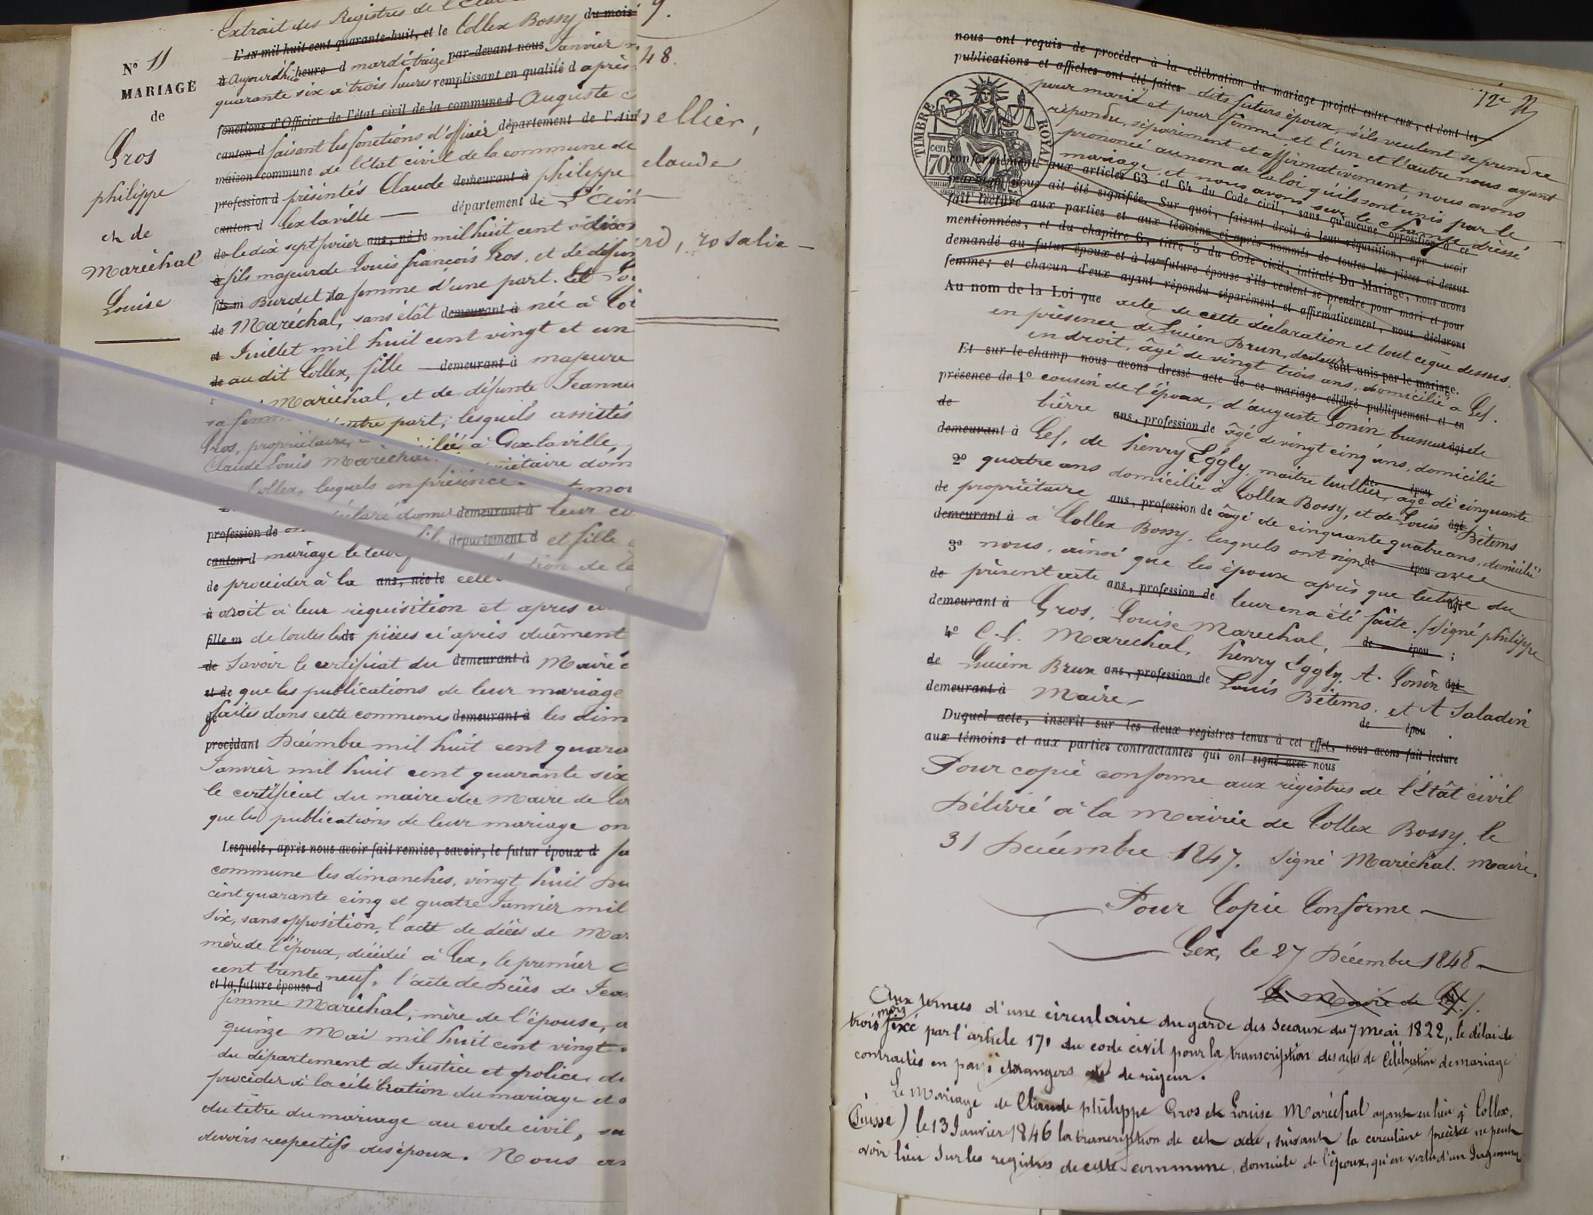 Extrait des Registres de l'Etat
L'an mil huit cent quarante-huit, et le Collex Bossy du mois
à Aujourd'hui heure d mardi treize par-devant nous Janvier
quarante six à trois heures remplissant en qualité d après
fonctions d'Officier de l'état civil de la commune d Auguste
canton d faisant les fonctions d'officier département de l'Ain
maison commune de l'état civil de la commune de
profession d présentés Claude demeurant à philippe
canton d Gex la ville — département de l'Ain
de le dix sept février ans, né le mil huit cent
à fils majeur de Louis françois Gros, et de défun
fils m Burdet sa femme d'une part. Et
de Maréchal, sans état demeurant à née à
et Juillet mil huit cent vingt et un
de au dit Collex, fille demeurant à majeure
Maréchal, et de défunte Jeanne
sa femme d'autre part; lesquels assistés
Gros, propriétaire, à Gex la ville,
Claude Louis Maréchal propriétaire dom
Collex, lesquels en présence
déclaré donner demeurant à leur
profession de
canton d mariage de leur fils département d et fille
de procéder à la ans, née le
à droit à leur réquisition et après
fille m de toutes les de pièces ci après duêment
de Savoir le certificat du demeurant à Maire
et de que les publications de leur mariage
faites dans cette commune demeurant à les dim
procédant Décembre mil huit cent quara
Janvier mil huit cent quarante six
le certificat du maire du Maire de
que les publications de leur mariage on
Lesquels, après nous avoir fait remise, savoir, le futur époux d
commune les dimanches, vingt huit
cent quarante cinq et quatre Janvier mil
six, sans opposition, l'acte de décès de
mère de l'époux, décédée à Gex, le premier
cent trente neuf, l'acte de Décès de
et la future épouse d
femme Maréchal, mère de l'épouse,
quinze Mai mil huit cent vingt
du département de Justice et police,
procéder à la célébration du mariage et
du titre du mariage au code civil,
devoirs respectifs des époux. Nous
N° 11
MARIAGE
de
Gros
philippe
et de
Maréchal
Louise
9.
48.
ellier,
claude
rd, rosalie —
12e
nous ont requis de procéder à la célébration du mariage projeté entre eux, et dont les
publications et affiches ont été faites dits futurs époux, s'ils veulent se prendre
pour mari et pour femme et l'un et l'autre nous ayant
répondu, séparément et affirmativement, nous avons
prononcé au nom de la loi qu'ils sont unis par le
mariage, et nous avons sur le champ dressé
TIMBRE ROYAL
70 cen
conformément aux articles 63 et 64 du Code civil, sans qu'aucune opposition à ce
mariage nous ait été signifiée. Sur quoi, faisant droit à leur réquisition, après avoir
fait lecture aux parties et aux témoins ci-après nommés de toutes les pièces ci-dessus
mentionnées, et du chapitre 6, titre 5 du Code civil, intitulé Du Mariage, nous avons
demandé au futur époux et à la future épouse s'ils veulent se prendre pour mari et pour
femme; et chacun d'eux ayant répondu séparément et affirmativement, nous déclarons
Au nom de la Loi que acte de cette déclaration et tout ce que dessus.
en présence de Lucien Brun, docteur sont unis par le mariage.
en droit, âgé de vingt trois ans, domicilié à Gex.
Et sur-le-champ nous avons dressé acte de ce mariage célébré publiquement et en
présence de 1° cousin de l'époux, d'auguste Gonin brasseur de
de bierre ans, profession de âgé de vingt cinq ans, domicilié
demeurant à Gex, de henry Eggly, maître tuillier, âgé de cinquante
2° quatre ans domicilié à Collex Bossy, et de Louis Bétems
de propriétaire ans, profession de âgé de cinquante quatre ans, domicilié
demeurant à à Collex Bossy, lesquels ont signé avec
3° nous, ainsi que les époux après que lecture du
de présent acte ans, profession de leur en a été faite. (Signé philippe
demeurant à Gros, Louise Marechal,
4° C. L. Marechal, henry Eggly, A. Gonin
de Lucien Brun ans, profession de Louis Bétems, et A Saladin
demeurant à Maire,
Duquel acte, inscrit sur les deux registres tenus à cet effet, nous avons fait lecture
aux témoins et aux parties contractantes qui ont signé avec nous
Pour copie conforme aux régistres de l'état civil
Délivré à la Mairie de Collex Bossy, le
31 Décembre 1847. Signé Maréchal. maire.
Pour Copie Conforme
Gex, le 27 Décembre 1848
Le Maire de Gex
Aux termes d'une circulaire du garde des Sceaux du 7 mai 1822, le délai de
trois mois fixé par l'article 171 du code civil pour la transcription des actes de Célébration de mariage
contractés en pays étrangers est de rigueur.
Le Mariage de Claude philippe Gros et Louise Maréchal ayant eu lieu à Collex
(Suisse) le 13 Janvier 1846 la transcription de cet acte, suivant la circulaire précitée ne peut
avoir lieu sur les registres de cette commune, domicile de l'époux, qu'en vertu d'un Jugement